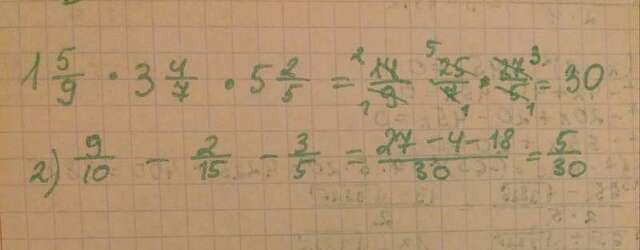 1 5/9 · 3 4/7 · 5 2/5 = 14/9 · 25/7 · 27/5 = 30
2) 9/10 - 2/15 - 3/5 = 27-4-18/30 = 5/30